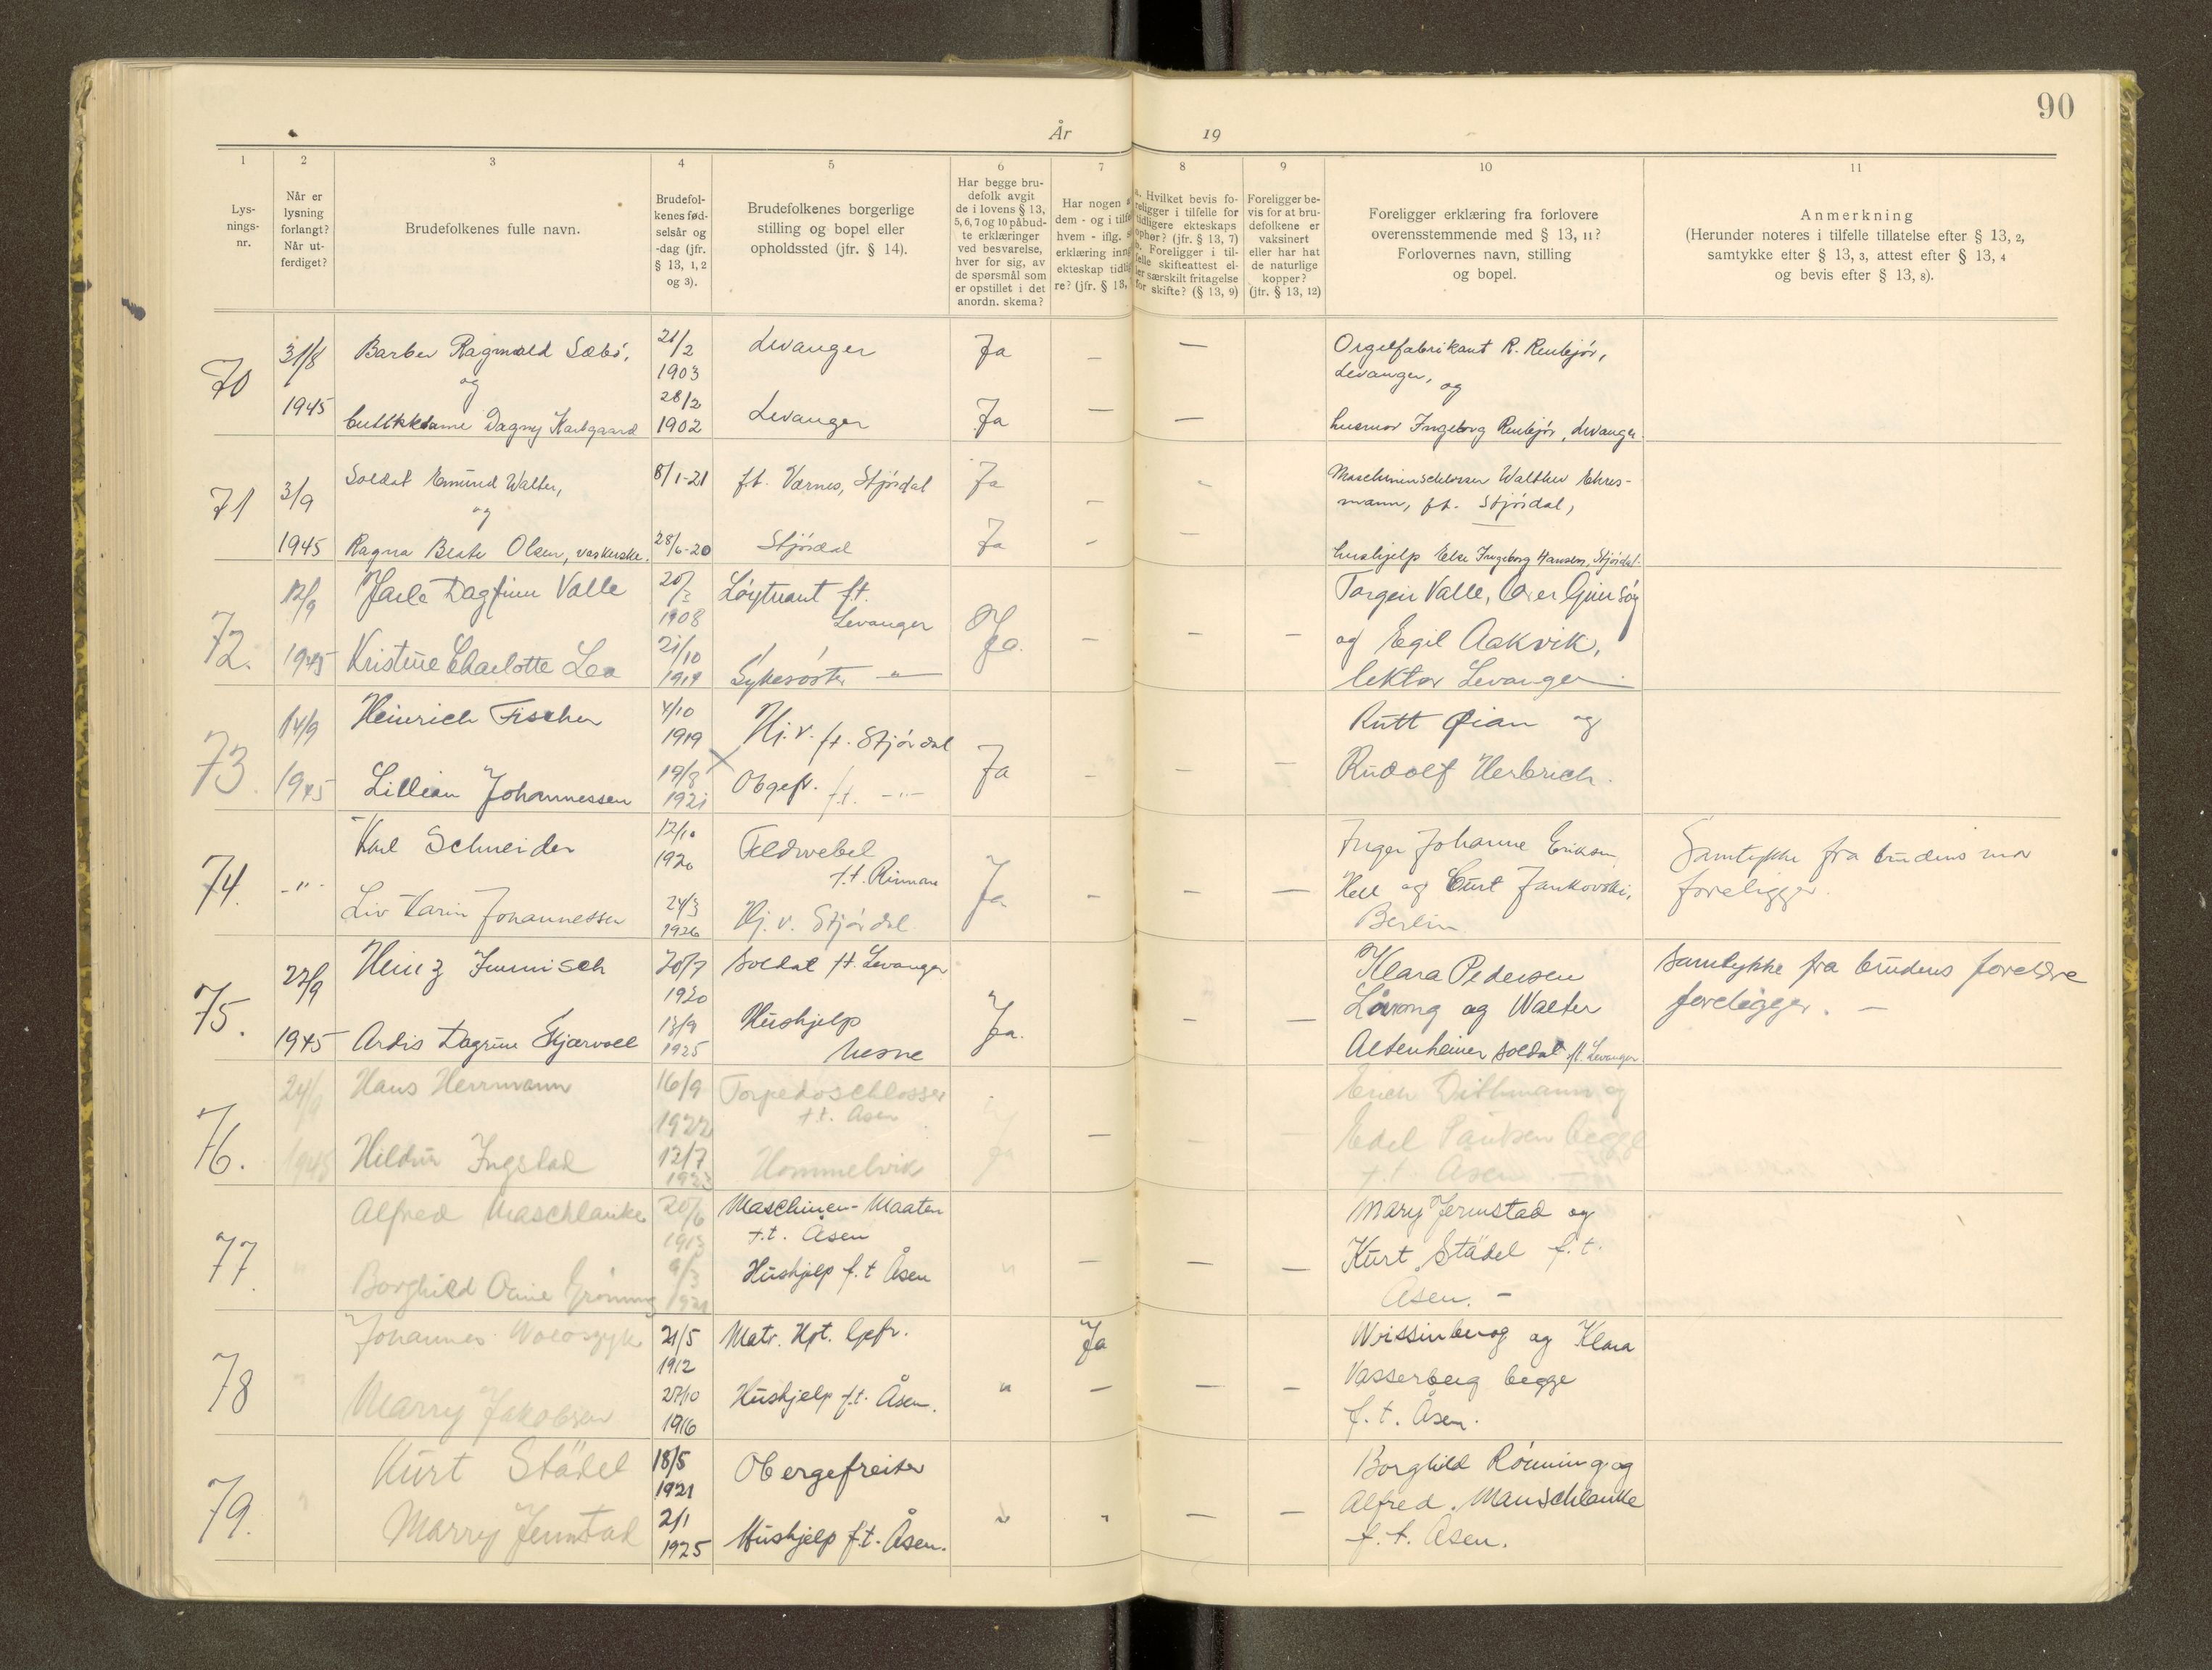 90
År 19
1 2 3 4 5 6 7 8 9 10 11
Lys-
nings-
nr.
Når er
lysning
forlangt?
Når ut-
ferdiget?
Brudefolkenes fulle navn.
Brudefol-
kenes fød-
selsår og
-dag (jfr.
§ 13, 1, 2
og 3).
Brudefolkenes borgerlige
stilling og bopel eller
opholdssted (jfr. § 14).
Har begge bru-
defolk avgit
de i lovens § 13,
5, 6, 7 og 10 påbud-
te erklæringer
ved besvarelse,
hver for sig, av
de spørsmål som
er opstillet i det
anordn. skema?
Har nogen
dem - og i tilfe
hvem - iflg.
erklæring inng
ekteskap tidlig
re? (jfr. § 13,
a. Hvilket bevis fo-
religger i tilfelle for
tidligere ekteskaps
ophør? (jfr. § 13, 7)
b. Foreligger i til-
felle skifteattest el-
ler særskilt fritagelse
for skifte? (§ 13, 9)
Foreligger be-
vis for at bru-
defolkene er
vaksinert
eller har hat
de naturlige
kopper?
(jfr. § 13, 12)
Foreligger erklæring fra forlovere
overensstemmende med § 13, 11?
Forlovernes navn, stilling
og bopel.
Anmerkning
(Herunder noteres i tilfelle tillatelse efter § 13, 2,
samtykke efter § 13, 3, attest efter § 13, 4
og bevis efter § 13, 8).
70
31/8
1945
Barber Ragnvald Sæbö,
og
Dagny
21/2
1903
28/2
1902
Levanger
Levanger
Ja — —
Ja — —
Orgelfabrikant R.
Levanger, og
husmor Ingeborg Levanger.
71
3/9
1945
Soldat Emund Walter,
og
Ragna Beate Olsen, vaskerske.
8/1-21
28/6-20
f.t. Værnes, Stjördal
Stjördal
Ja — -
Ja - —
Maschinenschlosser Walther Ehres-
mann, f.t. Stjördal,
hushjelp Else Ingeborg Hansen, Stjördal.
72.
12/9
1945
Jarle Dagfinn Valle
Kristine Charlotte Lea
20/3
1908
21/10
1919
Löytnant f.t.
Levanger
Sykesöster —"—
Ja
Ja. — — —
Torgeir Valle,
og Egil Aakvik,
lektor Levanger
73.
14/9
1945
Heinrich Fischer
Lillian Johannessen
4/10
1919
19/8
1921
Hj.v. f.t. Stjördal
Obgefr. f.t. —"—
Ja — — —
Rutt Øian og
Rudolf Herbrich.
74.
-"-
Karl Schneider
Liv Karin Johannessen
12/10
1920
24/3
1926
Feldwebel
f.t. Rinnan
Hj. v. Stjördal
Ja - — —
Inger Johanne Eriksen,
Hell og Curt Jankovski,
Berlin
Samtykke fra brudens mor
foreligger.
75.
22/9
1945
Heinz Immisch
Ardis Dagrun Skjærvoll
20/7
1920
13/9
1925
Soldat f.t. Levanger
Hushjelp
Mosne
Ja. — —
Klara Pedersen
og Walter
Altenheiner soldat f.t. Levanger
Samtykke fra brudens foreldre
foreligger. —
76.
24/9
1945
Hans Herrmann
Hildur Ingstad
16/9
1922
12/7
1923
Torpedoschlosser
f.t. Åsen
Hommelvik
Ja — — —
Erich Dithmann og
Edel Paulsen begge
f.t. Åsen
77.
"
Alfred Maschlanke
Borghild Grönning
20/6
1913
9/3
1921
Maschinen-Maaten
f.t. Åsen
Hushjelp f.t Åsen
" — — —
Mary Jermstad og
Kurt Städel f.t.
Åsen. —
78
"
Johannes
Marry Jakobsen
21/5
1912
27/10
1916
Matr. Hpt. Gefr.
Hushjelp f.t. Åsen.
Ja
" — — —
og Klara
Vasserberg begge
f.t. Åsen.
79.
"
Kurt Städel
Marry Jermstad
18/5
1921
2/1
1925
Obergefreiter
Hushjelp f.t. Åsen.
" " — —
Borghild Rönning og
Alfred Manschlanke
f.t. Åsen.